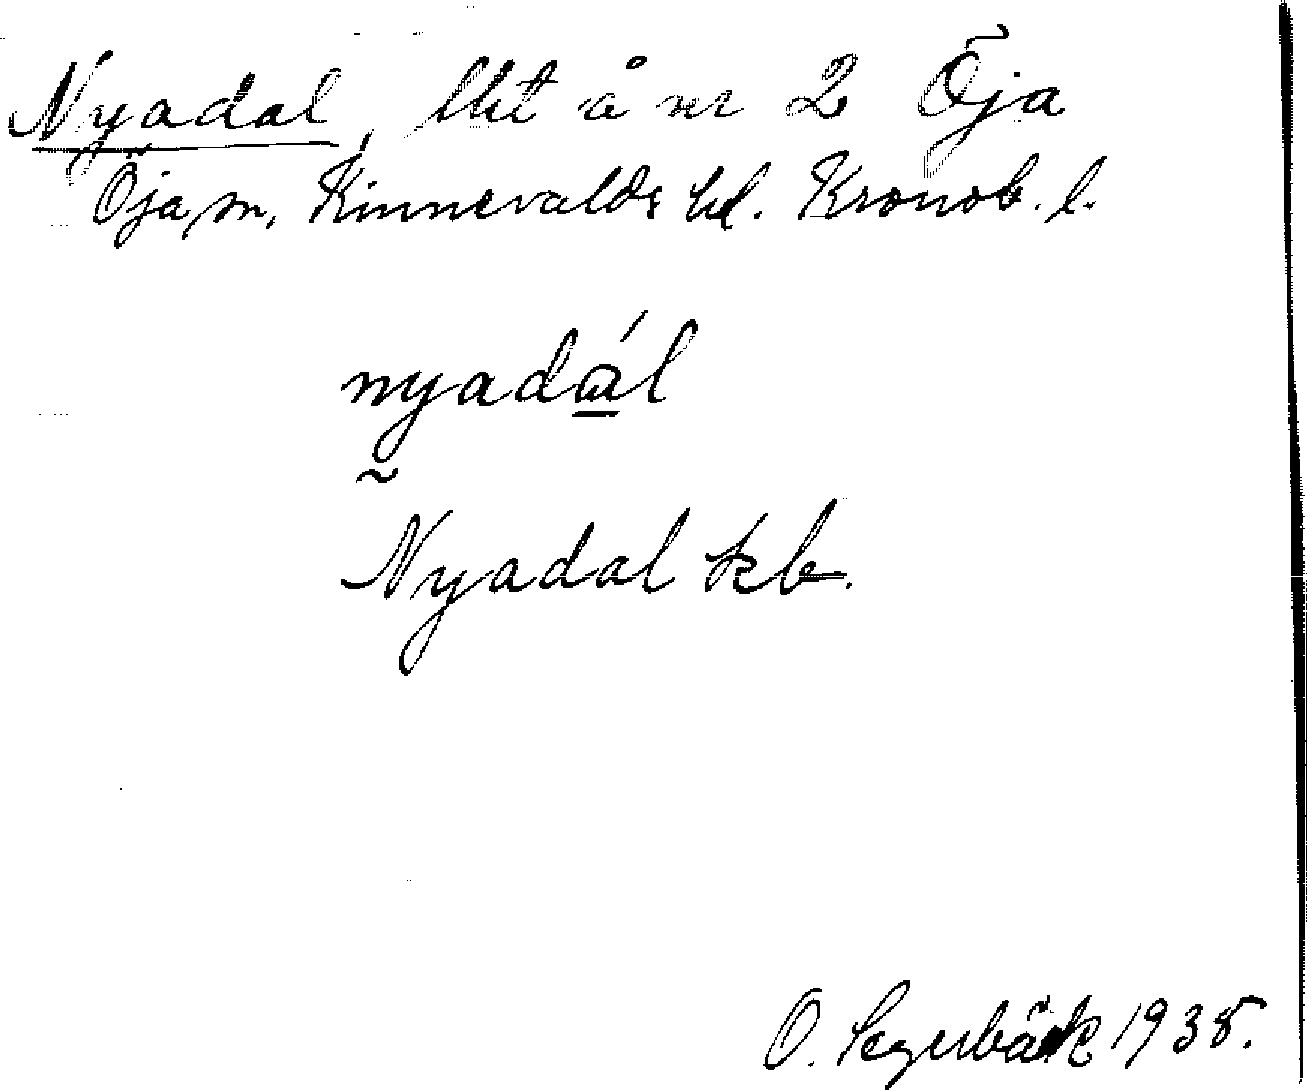 Nyadal, lht å nr 2 Öja
Öja sn, Kinnevalds hd. Kronob. l.
nyadál
Nyadal kb.
O. Segerbäck 1935.